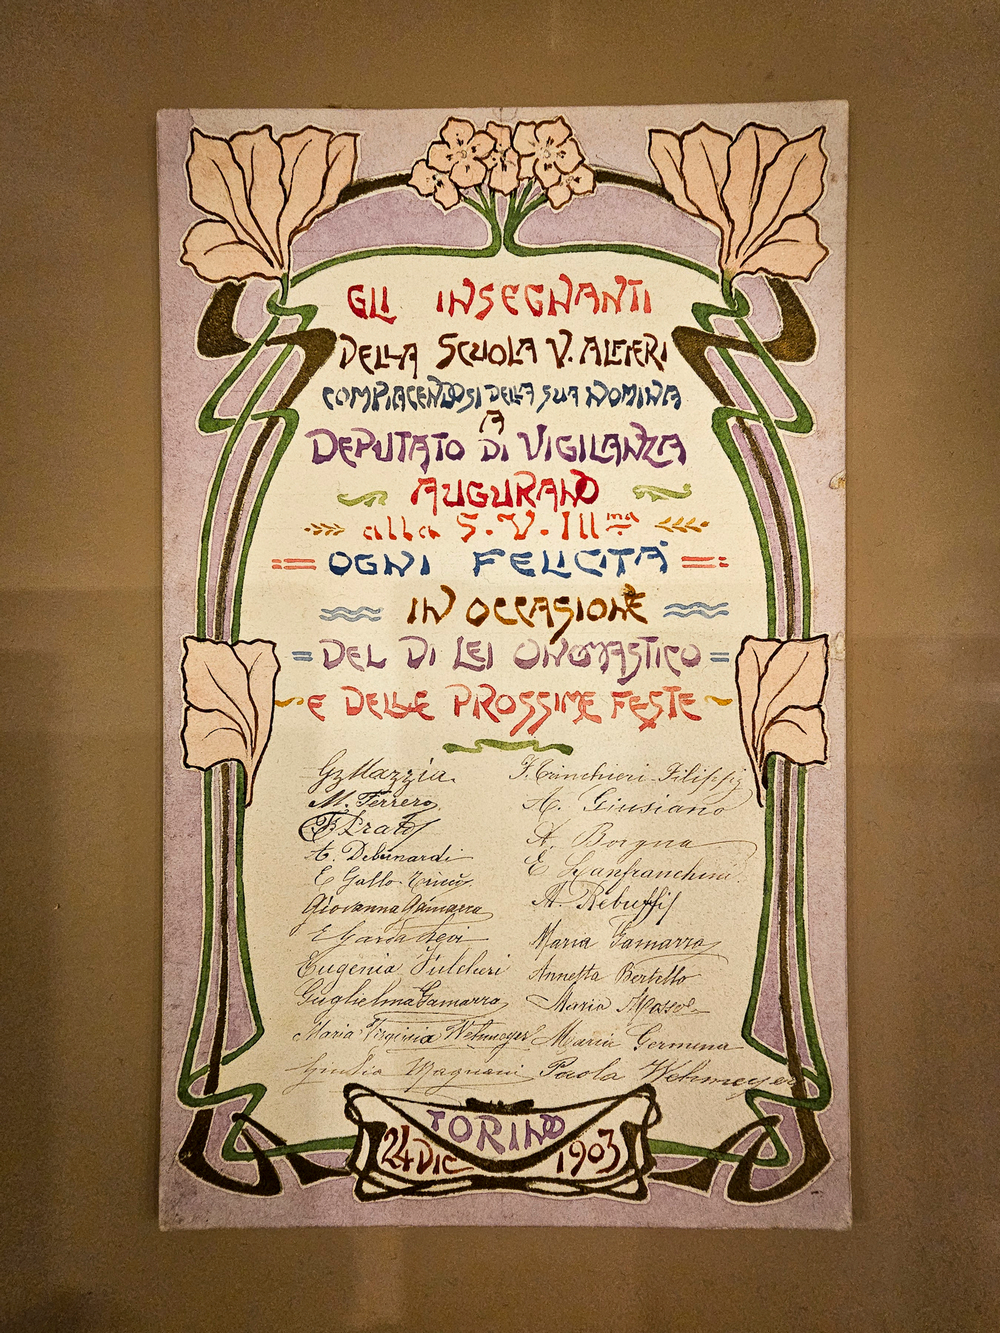 GLI INSEGNANTI
DELLA SCUOLA V. ALFIERI
COMPIACENDOSI DELLA SUA NOMINA
A
DEPUTATO DI VIGILANZA
AUGURANO
alla S. V. Ill.ma
OGNI FELICITÀ
IN OCCASIONE
DEL DI LEI ONOMASTICO
E DELLE PROSSIME FESTE
Mazzia
F. Trinchieri Filippi
M. Ferrero
A. Giusiano
Prato
A. Borgna
A. Debernardi
E Lanfranchini
E Gallo
A. Rebuffi
Giovanna Gamarra
Maria Gamarra
E Garda
Annetta Bertello
Eugenia Fulcheri
Maria Masso
Guglielma Gamarra
Maria Germena
Maria Virginia Wehmeyer
Paola Wehmeyer
Giulia Magnani
TORINO
24 DIC 1903